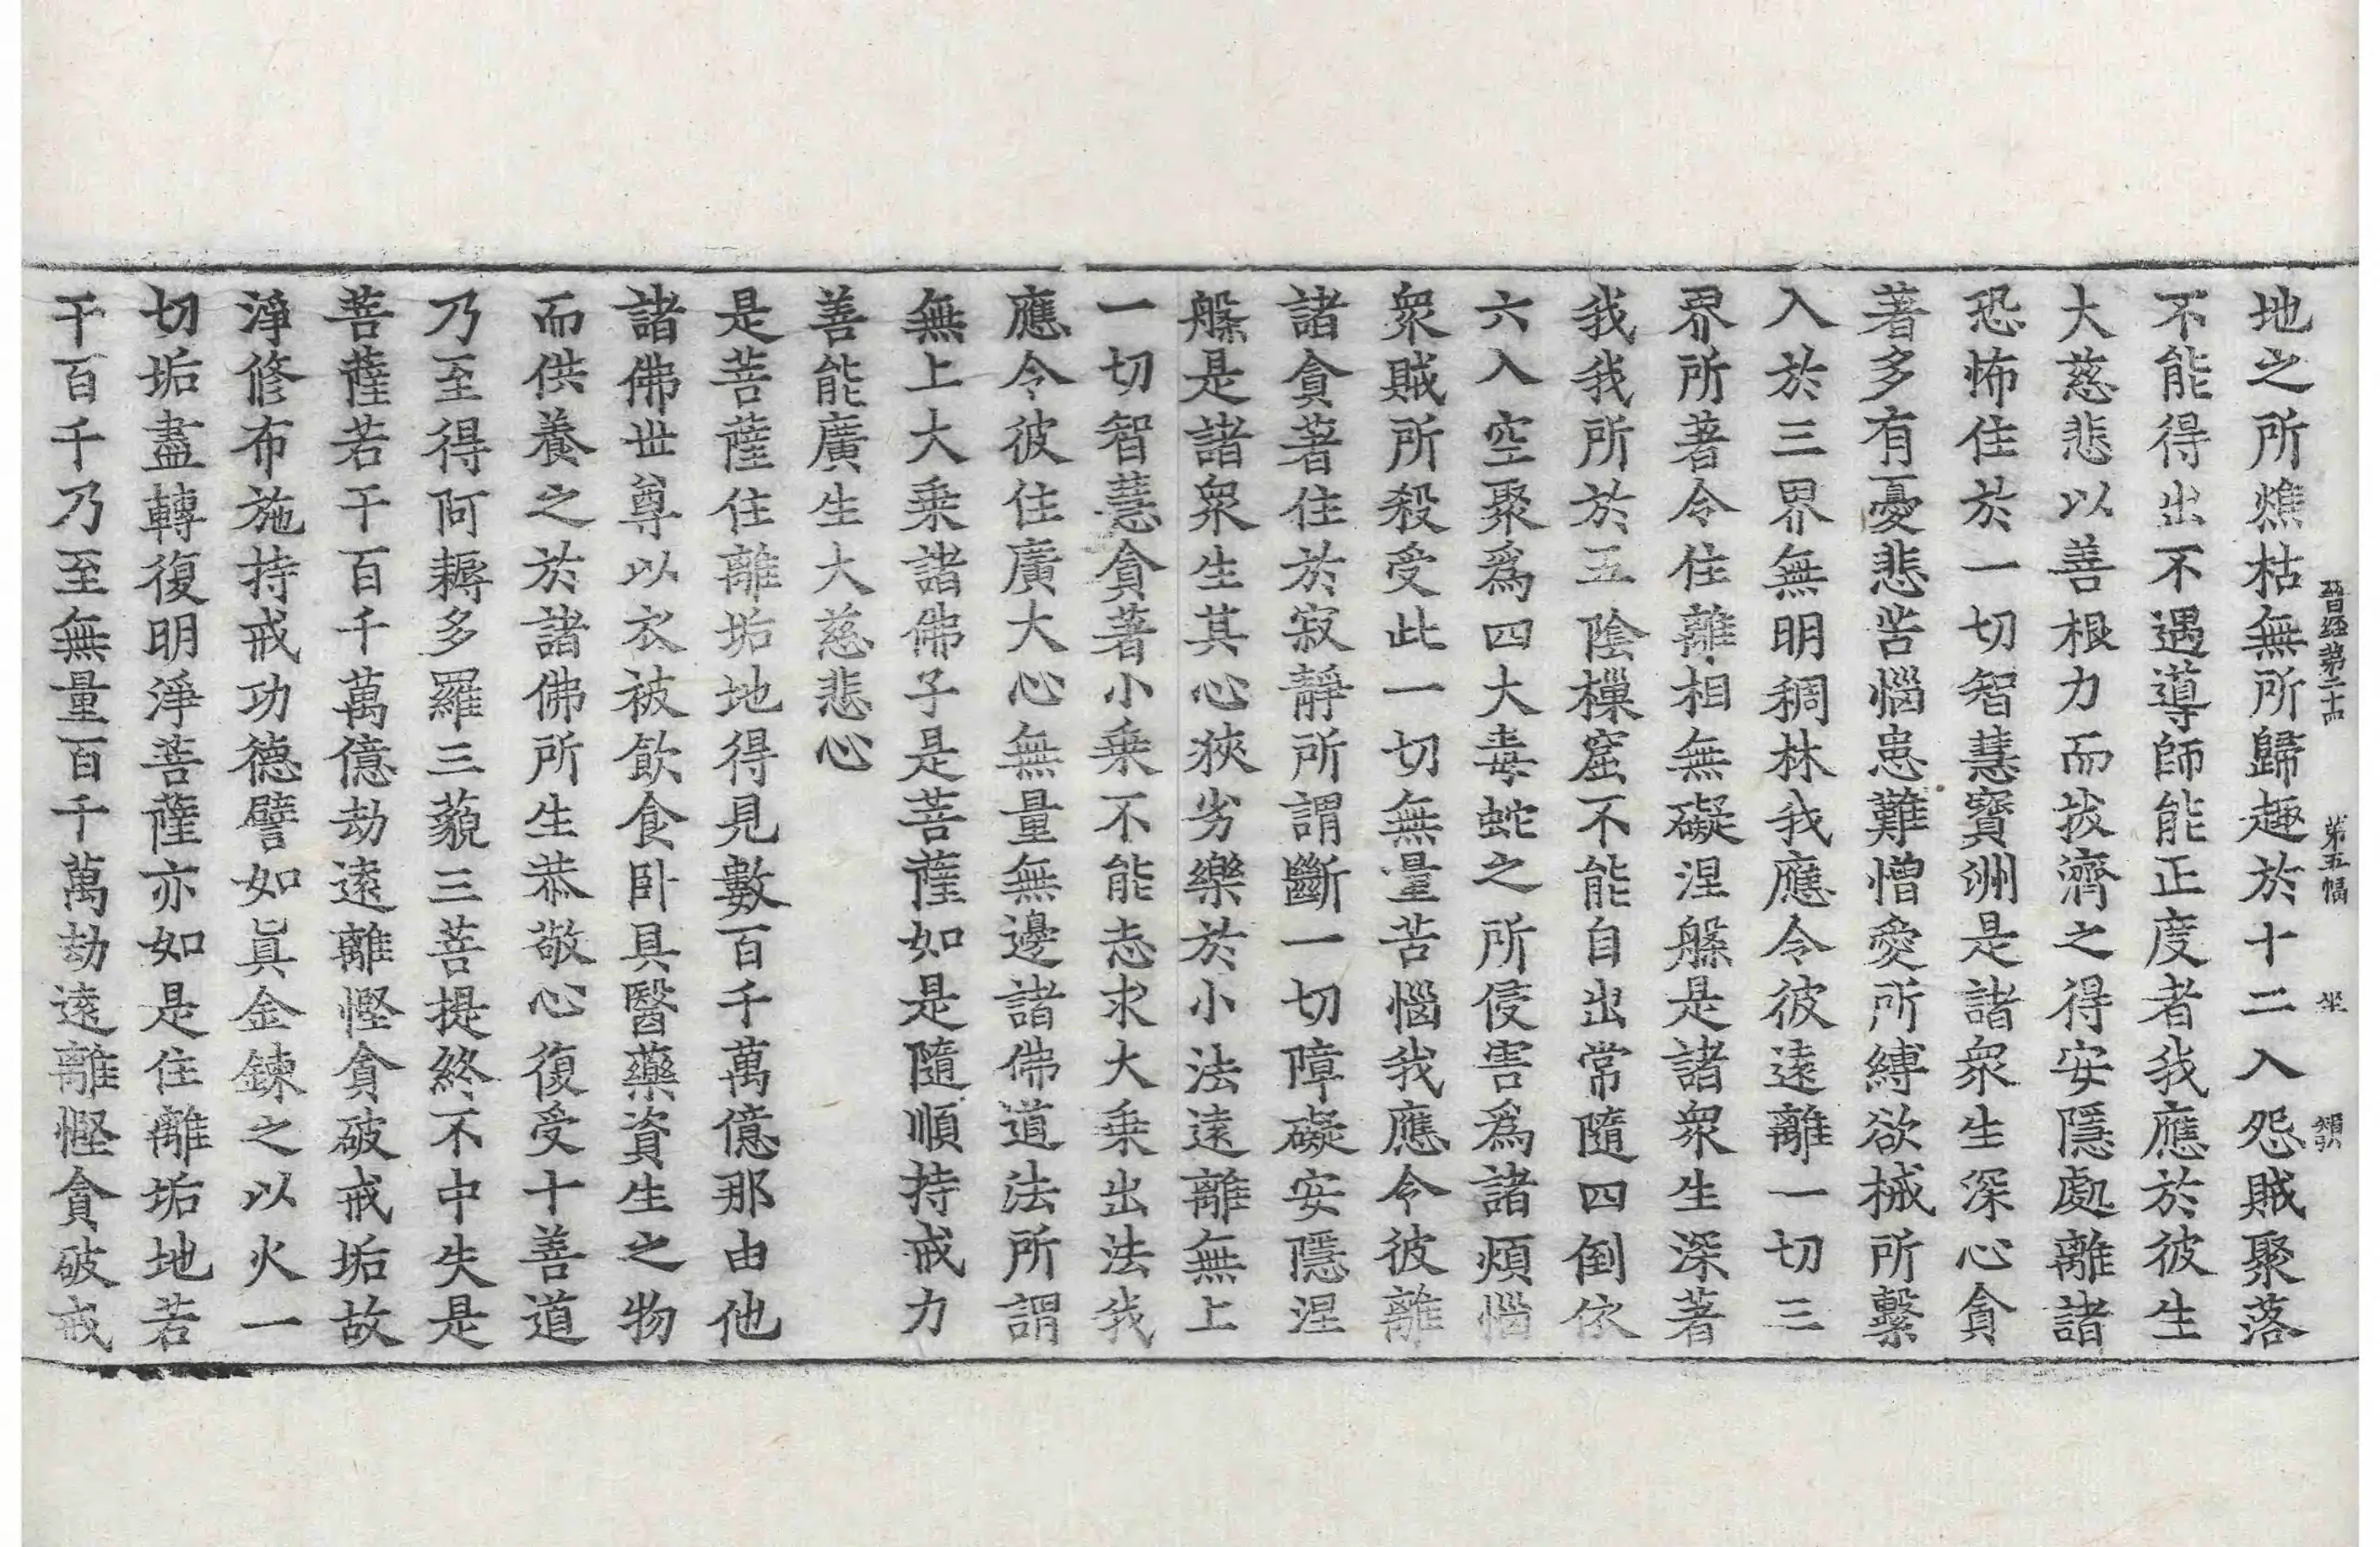 晉經第二十四 第五幅 坐
地之所燋枯無所歸趣於十二入怨賊聚落
不能得出不遇導師能正度者我應於彼生
大慈悲以善根力而拔濟之得安隱處離諸
恐怖住於一切智慧寶洲是諸衆生深心貪
著多有憂悲苦惱患難憎愛所縛欲械所繫
入於三界無明稠林我應令彼遠離一切三
界所著令住離相無礙涅槃是諸衆生深著
我我所於五陰樔窟不能自出常隨四倒依
六入空聚爲四大毒蛇之所侵害爲諸煩惱
衆賊所殺受此一切無量苦惱我應令彼離
諸貪著住於寂靜所謂斷一切障礙安隱涅
槃是諸衆生其心狹劣樂於小法遠離無上
一切智慧貪著小乗不能志求大乗出法我
應令彼住廣大心無量無邊諸佛道法所謂
無上大乗諸佛子是菩薩如是隨順持戒力
善能廣生大慈悲心
是菩薩住離垢地得見數百千萬億那由他
諸佛世尊以衣被飮食卧具醫藥資生之物
而供養之於諸佛所生恭敬心復受十善道
乃至得阿耨多羅三藐三菩提終不中失是
菩薩若干百千萬億劫遠離慳貪破戒垢故
淨修布施持戒功德譬如眞金鍊之以火一
切垢盡轉復明淨菩薩亦如是住離垢地若
干百千乃至無量百千萬劫遠離慳貪破戒